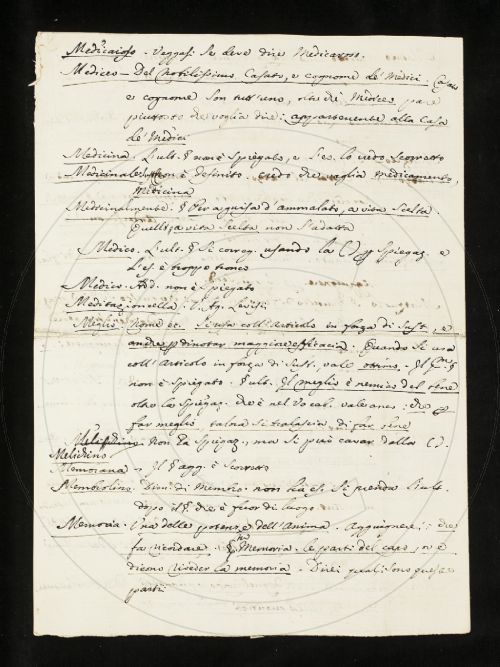 Medicaioso. Veggasi se deve dire Medicaroso.
Mediceo – Del Nobilissimo Casato, e cognome de' Medici. Casato
e cognome son tutt'uno, oltre di Mediceo pare
piuttosto che voglia dire: appartenente alla Casa
de' Medici
Medicina. L'ult. § non è spiegato, e l'es. lo credo scorretto
Medicinale. non è definito. credo che voglia medicamento,
Medicina
Medicinalmente. § Per a guisa d'ammalato, a vita scelta.
Quell'a vita scelta non s'adatta
Medico. L'ult. § si correg. usando la () Spiegaz. e
l'es. è troppo tronco
Medico. Add. non è spiegato
Meditazioncella. V. Ag. Lucisj.
Meglio. Nome etc. Si usa coll'Articolo in forza di Sust., e
anche p dinotar maggior efficacia. Quando si usa
coll'Articolo in forza di Sust. vale ottimo. Il §
non è spiegato. § ult. Il meglio è nemico del bene
oltre la Spiegaz. che è nel Vocab. vale anco: che
far meglio, talora si tralascia di far bene
Non ha Spiegaz., ma si può cavar dalla ().
Melichino
Membrana. Il § agg. è scorretto
Membrolino. Dim. di Membro. non ha es. Si prenda l'ult.
dopo il §. che è fuor di luogo
Memoria. Una delle potenze dell'Anima. Aggiugnere: che
fa ricordare. § Memoria. le parti del capo, ov'è
dicono risieder la memoria. Direi quali sono queste
parti